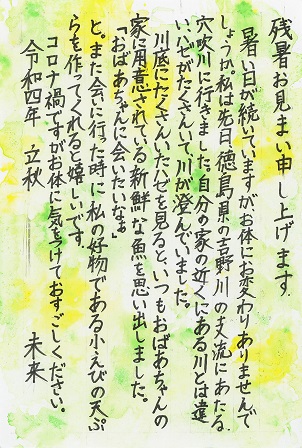 残暑お見まい申し上げます。
暑い日が続いていますがお体にお変わりありませんで
しょうか。私は先日、徳島県の吉野川の支流にあたる
穴吹川に行きました。自分の家の近くにある川とは違
い、ハゼがたくさんいて川が澄んでいました。
川底にたくさんいたハゼを見ると、いつもおばあちゃんの
家に用意されている新鮮な魚を思い出しました。
「おばあちゃんに会いたいなぁ」
と。また会いに行った時に私の好物である小えびの天ぷ
らを作ってくれると嬉しいです。
コロナ禍ですがお体に気をつけておすごしください。
令和四年 立秋
未来